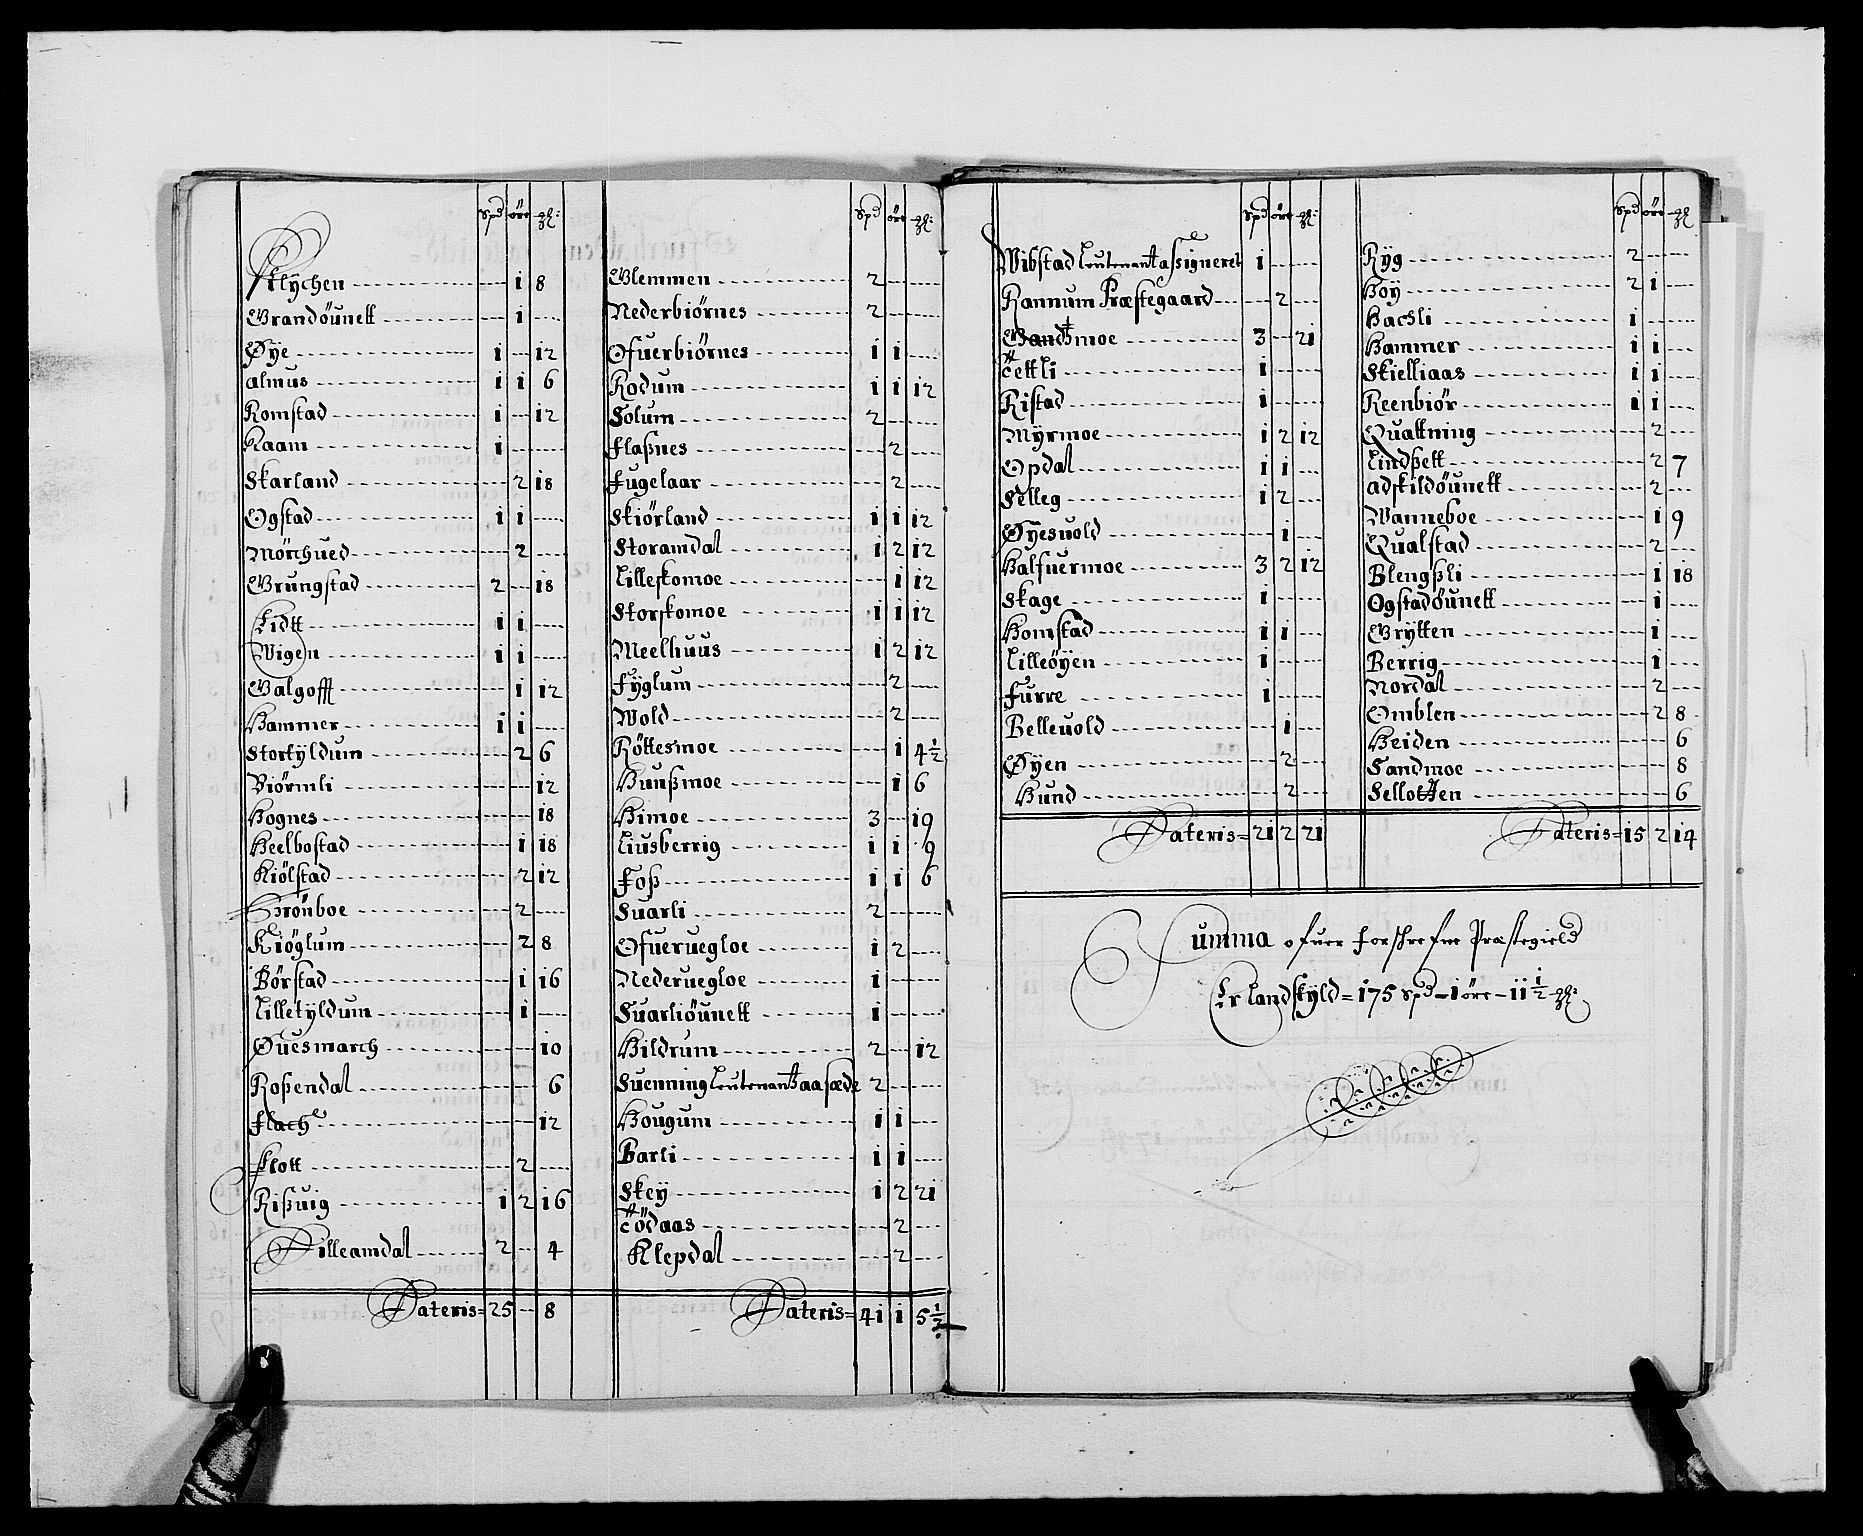 Spd øre gl:
Flÿchen - 1 8
Grandöunett - 1 -
Øÿe 1 - 12
almus 1 1 6
Romstad 1 - 12
Raam 1 - -
Skarland - 2 18
Ogstad 1 1 -
Mörchued - 2 -
Grungstad 2 - 18
Lidtt 1 1 -
Wigen 1 1 -
Galgofft - 1 12
Hammer 1 1 -
Stortÿldum - 2 6
Biörmli - - 12
Hognes - - 18
Heelbostad - 1 18
Kiölstad - 2 12
Grönboe - 2 -
Kiöglum - 2 8
Börstad - 1 16
Lilletÿldum - 1 -
Øuesmarch - - 10
Roßendal - - 6
Flach - - 12
Flott - 2 -
Rißuig 1 2 16
Lilleamdal 2 - 4
Lateris= 25 - 8
Spd øre gl:
Glemmen 2 - -
Nederbiörnes 2 - -
Ofuerbiörnes 1 1 -
Rodum 1 1 12
Solum 2 - -
Flaßnes - 2 -
Fugelaar - 2 -
Skiörland 1 1 12
Storamdal 1 2 12
Lilleskomoe - 1 12
Storskomoe 1 1 12
Meelhuus 1 2 12
Fÿglum - 2 -
Wold - 2 -
Röttesmoe - 1 4½
Huußmoe - 1 6
Himoe 3 - 19
Liusberrig 1 1 9
Foß 1 1 6
Suarli 2 - -
Ofueruegloe 1 2 -
Nederuegloe 1 - -
Suarliöunett 1 - -
Hildrum 2 - 12
Suenning Leutenant aasæde 2 - -
Hougum 1 1 -
Barli 1 1 -
Skeÿ 1 2 21
Tödaas - 2 -
Klepdal - 2 -
Lateris= 41 1 5½
Spd øre gl:
Wibstad Leutenant assigneret 1 - -
Rannum Præstegaard - 2 -
Gandtmoe 3 - 21
Tettli 1 - -
Ristad 1 - -
Mÿrmoe 1 2 12
Opdal 1 1 -
Selleg 1 2 -
Øÿesuold - 1 -
Halfuermoe 3 2 12
Skage 1 - -
Homstad 1 1 -
Lilleöÿen 1 - -
Furre 1 - -
Belleuold - 1 -
Øÿen - 2 -
Hund - 2 -
Lateris= 21 2 21
Spd øre gl
Rÿg 2 - -
Høÿ 2 1 -
Hachli 1 - -
Hammer 1 1 -
Skielliaas 1 1 -
Reenbiör 1 1 -
Quattning - 2 -
Lindßett - 2 7
adskildöunett - 2 -
Wanneboe - 1 9
Qualstad - 2 -
Blengßli - 1 18
Ogstadöunett - 1 -
Grÿtten - 1 -
Berrig - 1 -
Nordal - 2 -
Omblen - 2 8
Heiden - - 6
Sandmoe - - 8
Sellotten - - 6
Lateris= 15 2 14
Summa ofuer forschrefne Præstegield
Er landskÿld= 175 spd - 1 öre - 11½ gl: